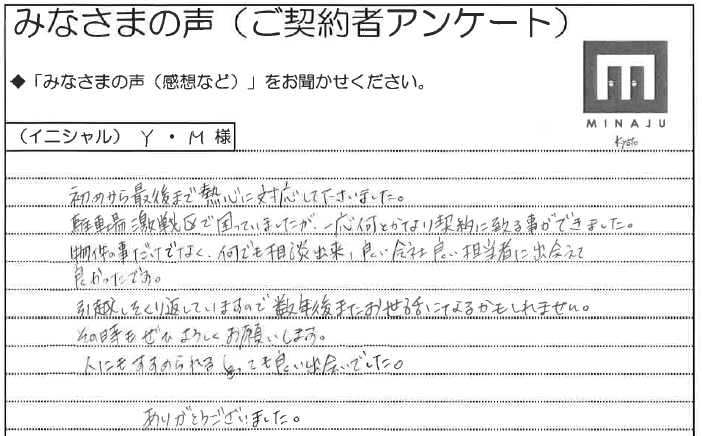 みなさまの声（ご契約者アンケート）
◆「みなさまの声（感想など）」をお聞かせください。
MINAJU
Kyoto
（イニシャル） Y ・ M 様
初めから最後まで熱心に対応して下さいました。
駐車場激戦区で困っていましたが、一応何とかなり契約に致る事ができました。
物件の事だけでなく、何でも相談出来、良い会社良い担当者に出会えて
良かったです。
引越しをくり返していますので数年後またお世話になるかもしれません。
その時もぜひよろしくお願いします。
人にもすすめられるとっても良い出会いでした。
ありがとうございました。